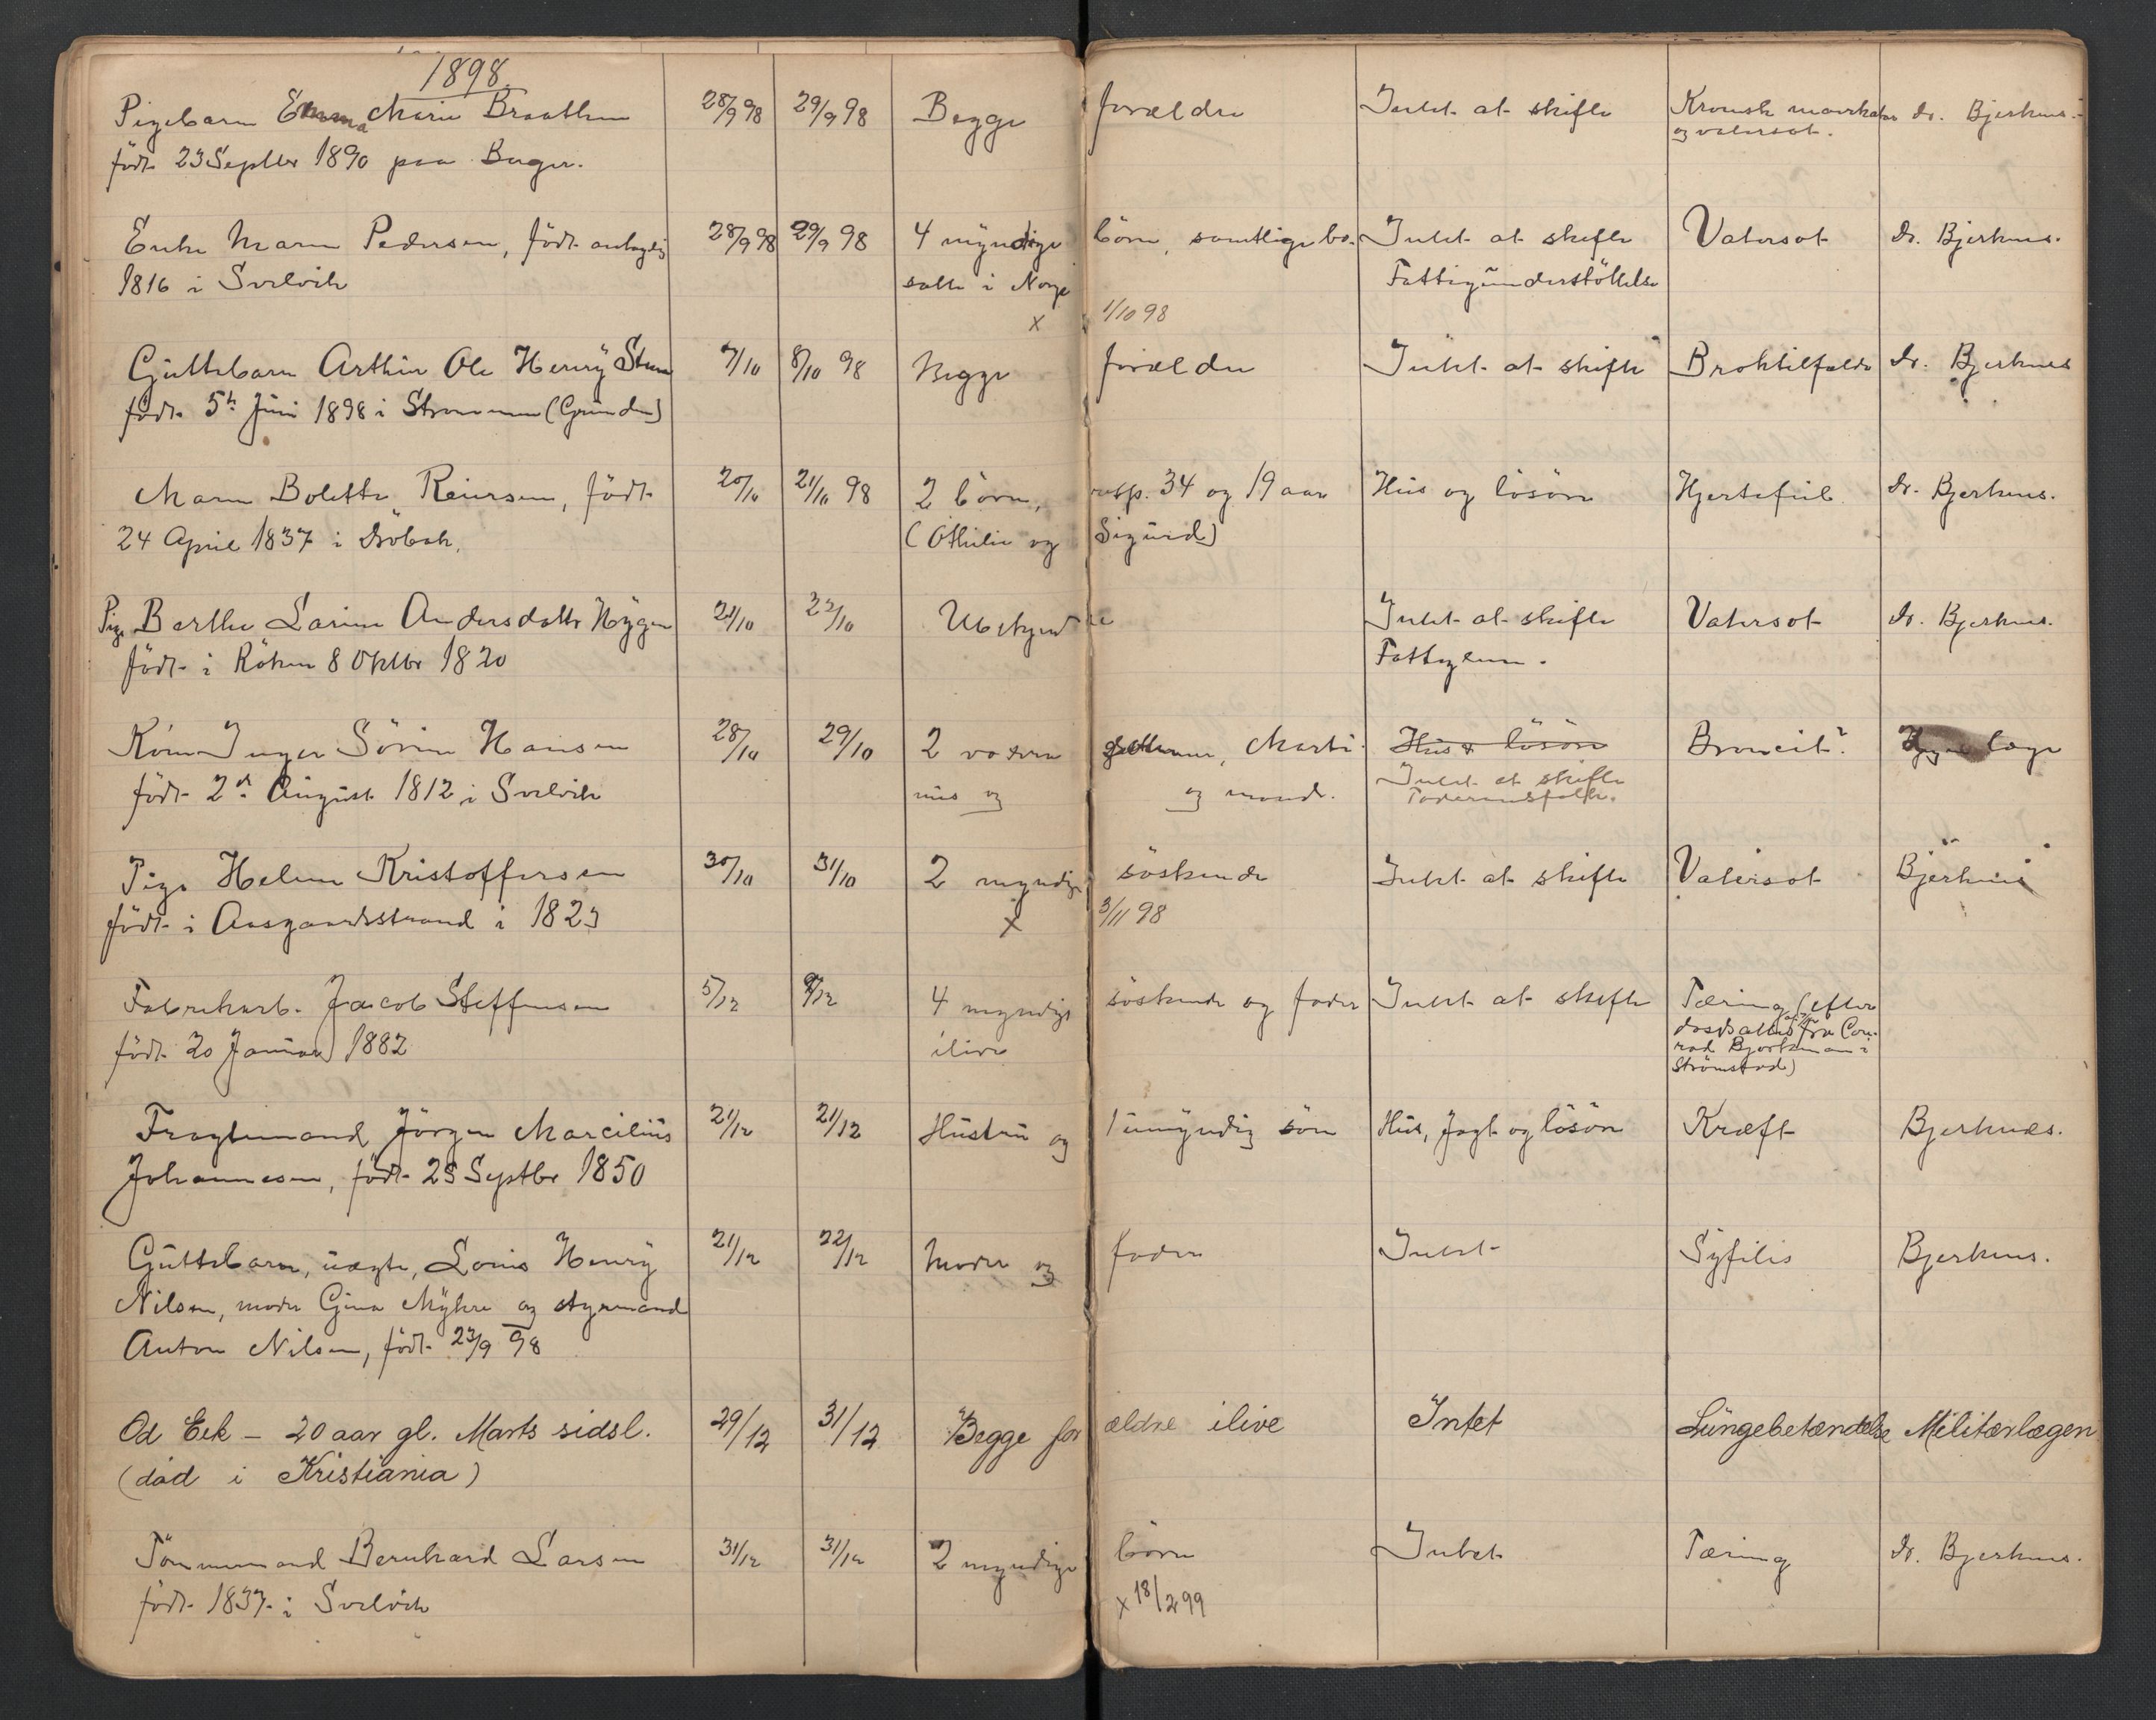 1898.
Pigebarn Emma Marie Braathen 28/9 98 29/9 98 Begge forældre Intet at skifte Kronisk mavekatar dr. Bjerknes.
født 23 Septbr 1890 paa Berger. og vatersot.
Enke Maren Pedersen, født antagelig 28/9 98 29/9 98 4 myndige børn, samtlige bo- Intet at skifte Vatersot dr. Bjerknes.
1816 i Svelvik satte i Norge Fattigunderstöttelse
x 1/10 98
Guttebarn Arthur Ole Henry Steen 7/10 8/10 98 Begge forældre Intet at skifte Broktilfælde dr. Bjerknes
födt 5te Juni 1898 i Strømmen (Grunden)
Maren Bolette Reiersen, födt 20/10 21/10 98 2 börn, resp. 34 og 19 aar Hus og lösöre Hjertefeil dr. Bjerknes.
24 April 1837 i Dröbak. (Othilie og Sigurd)
Pige Berthe Larine Andersdatter Høgen 21/10 22/10 Ubekjendte Intet at skifte Vatersot dr. Bjerknes.
födt i Röken 8 Oktbr 1820 Fattiglem.
Kone Inger Sörine Hansen 28/10 29/10 2 voxne Marti- Hus & lösöre Broncit? læge
födt 2den August 1812 i Svelvik nus og og mand. Intet at skifte
Pige Helene Kristoffersen 30/10 31/10 2 myndige söskende Intet at skifte Vatersot Bjerknes
födt i Aasgaardsstrand i 1823 x 3/11 98
Fabrikarb. Jacob Steffensen 5/12 4 myndige söskende og fader Intet at skifte Tæring (efter
födt 20 Januar 1882 ilive dødsattest fra Con-
rad Bjorkman i
Strömstad)
Fragtemand Jörgen Marcilius 21/12 21/12 Hustru og 1 umyndig sön Hus, Jagt og lösöre Kræft Bjerknes.
Johannesen, födt 25 Septbr 1850
Guttebarn, uægte, Louis Henry 21/12 22/12 Moder og fader Intet Syfilis Bjerknes.
Nilsen, moder Gina Myhre og styrmand
Anton Nilsen, födt 23/9 98
Od Eek - 20 aar gl. Marts sidsl. 29/12 31/12 Begge forældre ilive Intet Lungebetændelse Militærlægen
(død i Kristiania)
Tömmermand Bernhard Larsen 31/12 31/12 2 myndige börn Intet Tæring dr. Bjerknes.
födt 1837 i Svelvik x 18/2 99